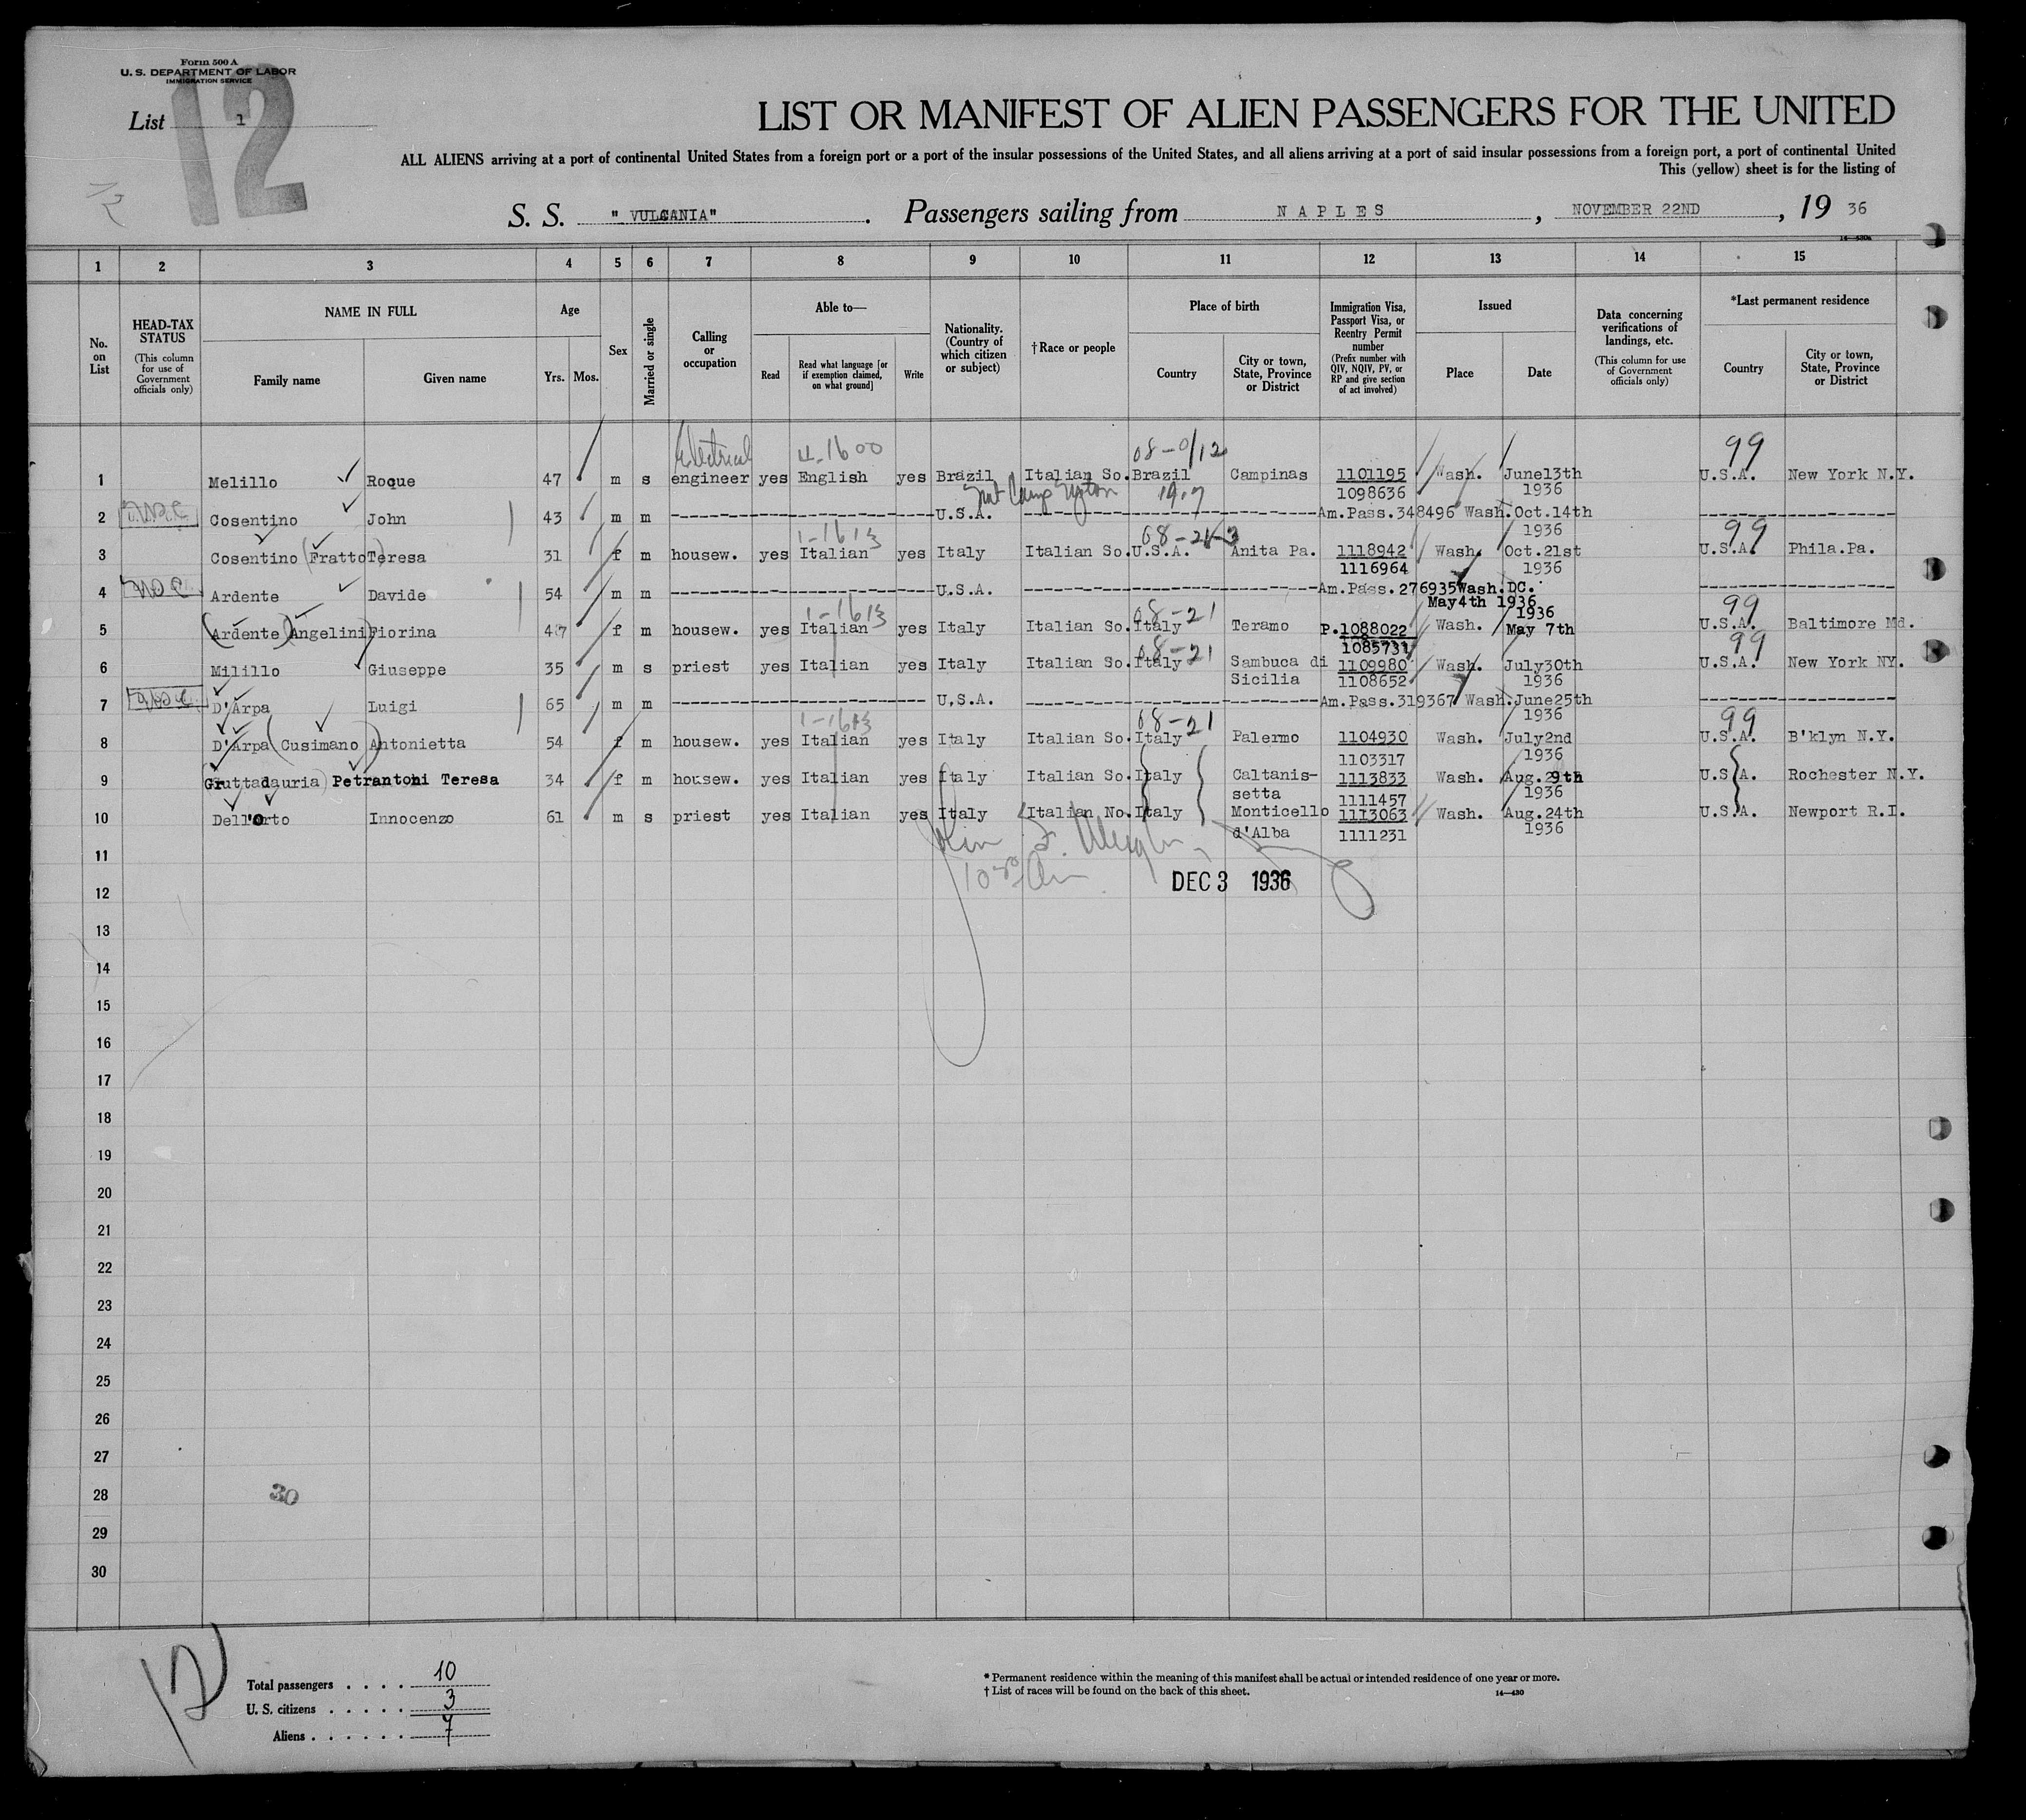 Form 500 A
U. S. DEPARTMENT OF LABOR
IMMIGRATION SERVICE
12
List 1
LIST OR MANIFEST OF ALIEN PASSENGERS FOR THE UNITED
ALL ALIENS arriving at a port of continental United States from a foreign port or a port of the insular possessions of the United States, and all aliens arriving at a port of said insular possessions from a foreign port, a port of continental United
This (yellow) sheet is for the listing of
S. S. " VULCANIA" . Passengers sailing from N A P L E S , NOVEMBER 22ND , 19 36
1 2 3 4 5 6 7 8 9 10 11 12 13 14 15
No. on List
HEAD-TAX STATUS (This column for use of Government officials only)
NAME IN FULL
Family name Given name
Age
Yrs. Mos.
Sex
Married or single
Calling or occupation
Able to—
Read
Read what language [or if exemption claimed, on what ground]
Write
Nationality. (Country of which citizen or subject)
†Race or people
Place of birth
Country
City or town, State, Province or District
Immigration Visa, Passport Visa, or Reentry Permit number (Prefix number with QIV, NQIV, PV, or RP and give section of act involved)
Issued
Place Date
Data concerning verifications of landings, etc. (This column for use of Government officials only)
*Last permanent residence
Country
City or town, State, Province or District
Electrical 4-1600 08-0/12 99
1 Melillo Roque 47 m s engineer yes English yes Brazil Italian So. Brazil Campinas 1101195 Wash. June13th U.S.A. New York N.Y.
1098636 1936
2 Cosentino John 43 m m U.S.A. Am.Pass.348496 Wash.Oct.14th
1-1613 1936 99
3 Cosentino (Fratto) Teresa 31 f m housew. yes Italian yes Italy Italian So. U.S.A. Anita Pa. 1118942 Wash. Oct.21st U.S.A. Phila.Pa.
1116964 1936
4 Ardente Davide 54 m m U.S.A. Am.Pass.276935Wash.DC.
May4th 1936
1-1613 08-21 1936 99
5 (Ardente) Angelini Fiorina 47 f m housew. yes Italian yes Italy Italian So. Italy Teramo P.1088022 Wash. May 7th U.S.A. Baltimore Md.
1085731 08-21 99
6 Milillo Giuseppe 35 m s priest yes Italian yes Italy Italian So. Italy Sambuca di 1109980 Wash. July30th U.S.A. New York NY.
Sicilia 1108652 1936
7 D'Arpa Luigi 65 m m U.S.A. Am.Pass.319367 Wash.June25th
1-1613 08-21 1936 99
8 D'Arpa (Cusimano) Antonietta 54 f m housew. yes Italian yes Italy Italian So. Italy Palermo 1104930 Wash. July2nd U.S.A. B'klyn N.Y.
1103317 1936
9 Gruttadauria Petrantoni Teresa 34 f m housew. yes Italian yes Italy Italian So. Italy Caltanis- 1113833 Wash. Aug.29th U.S.A. Rochester N.Y.
setta 1111457 1936
10 Dell'Orto Innocenzo 61 m s priest yes Italian yes Italy Italian No. Italy Monticello 1113063 Wash. Aug.24th U.S.A. Newport R.I.
d'Alba 1111231 1936
11
12 DEC 3 1936
13
14
15
16
17
18
19
20
21
22
23
24
25
26
27
28 30
29
30
12
Total passengers . . . . 10
U. S. citizens . . . . . 3
Aliens . . . . . . 7
* Permanent residence within the meaning of this manifest shall be actual or intended residence of one year or more.
† List of races will be found on the back of this sheet.
14—430